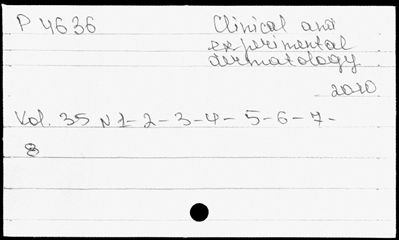 P 4636
Clinical and
experimental
dermatology
2010
Vol. 35 N 1-2-3-4-5-6-7-
8